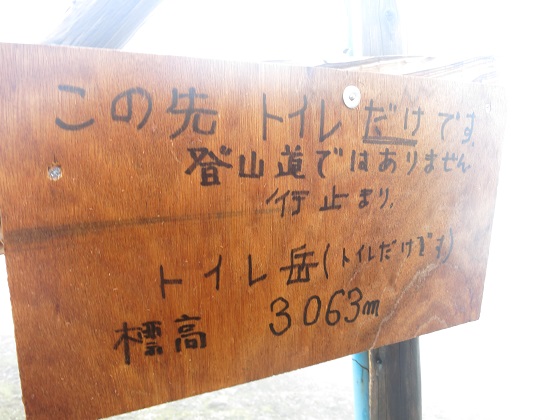 この先 トイレだけです.
登山道ではありません
行止まり.
トイレ岳(トイレだけです)
標高 3063m